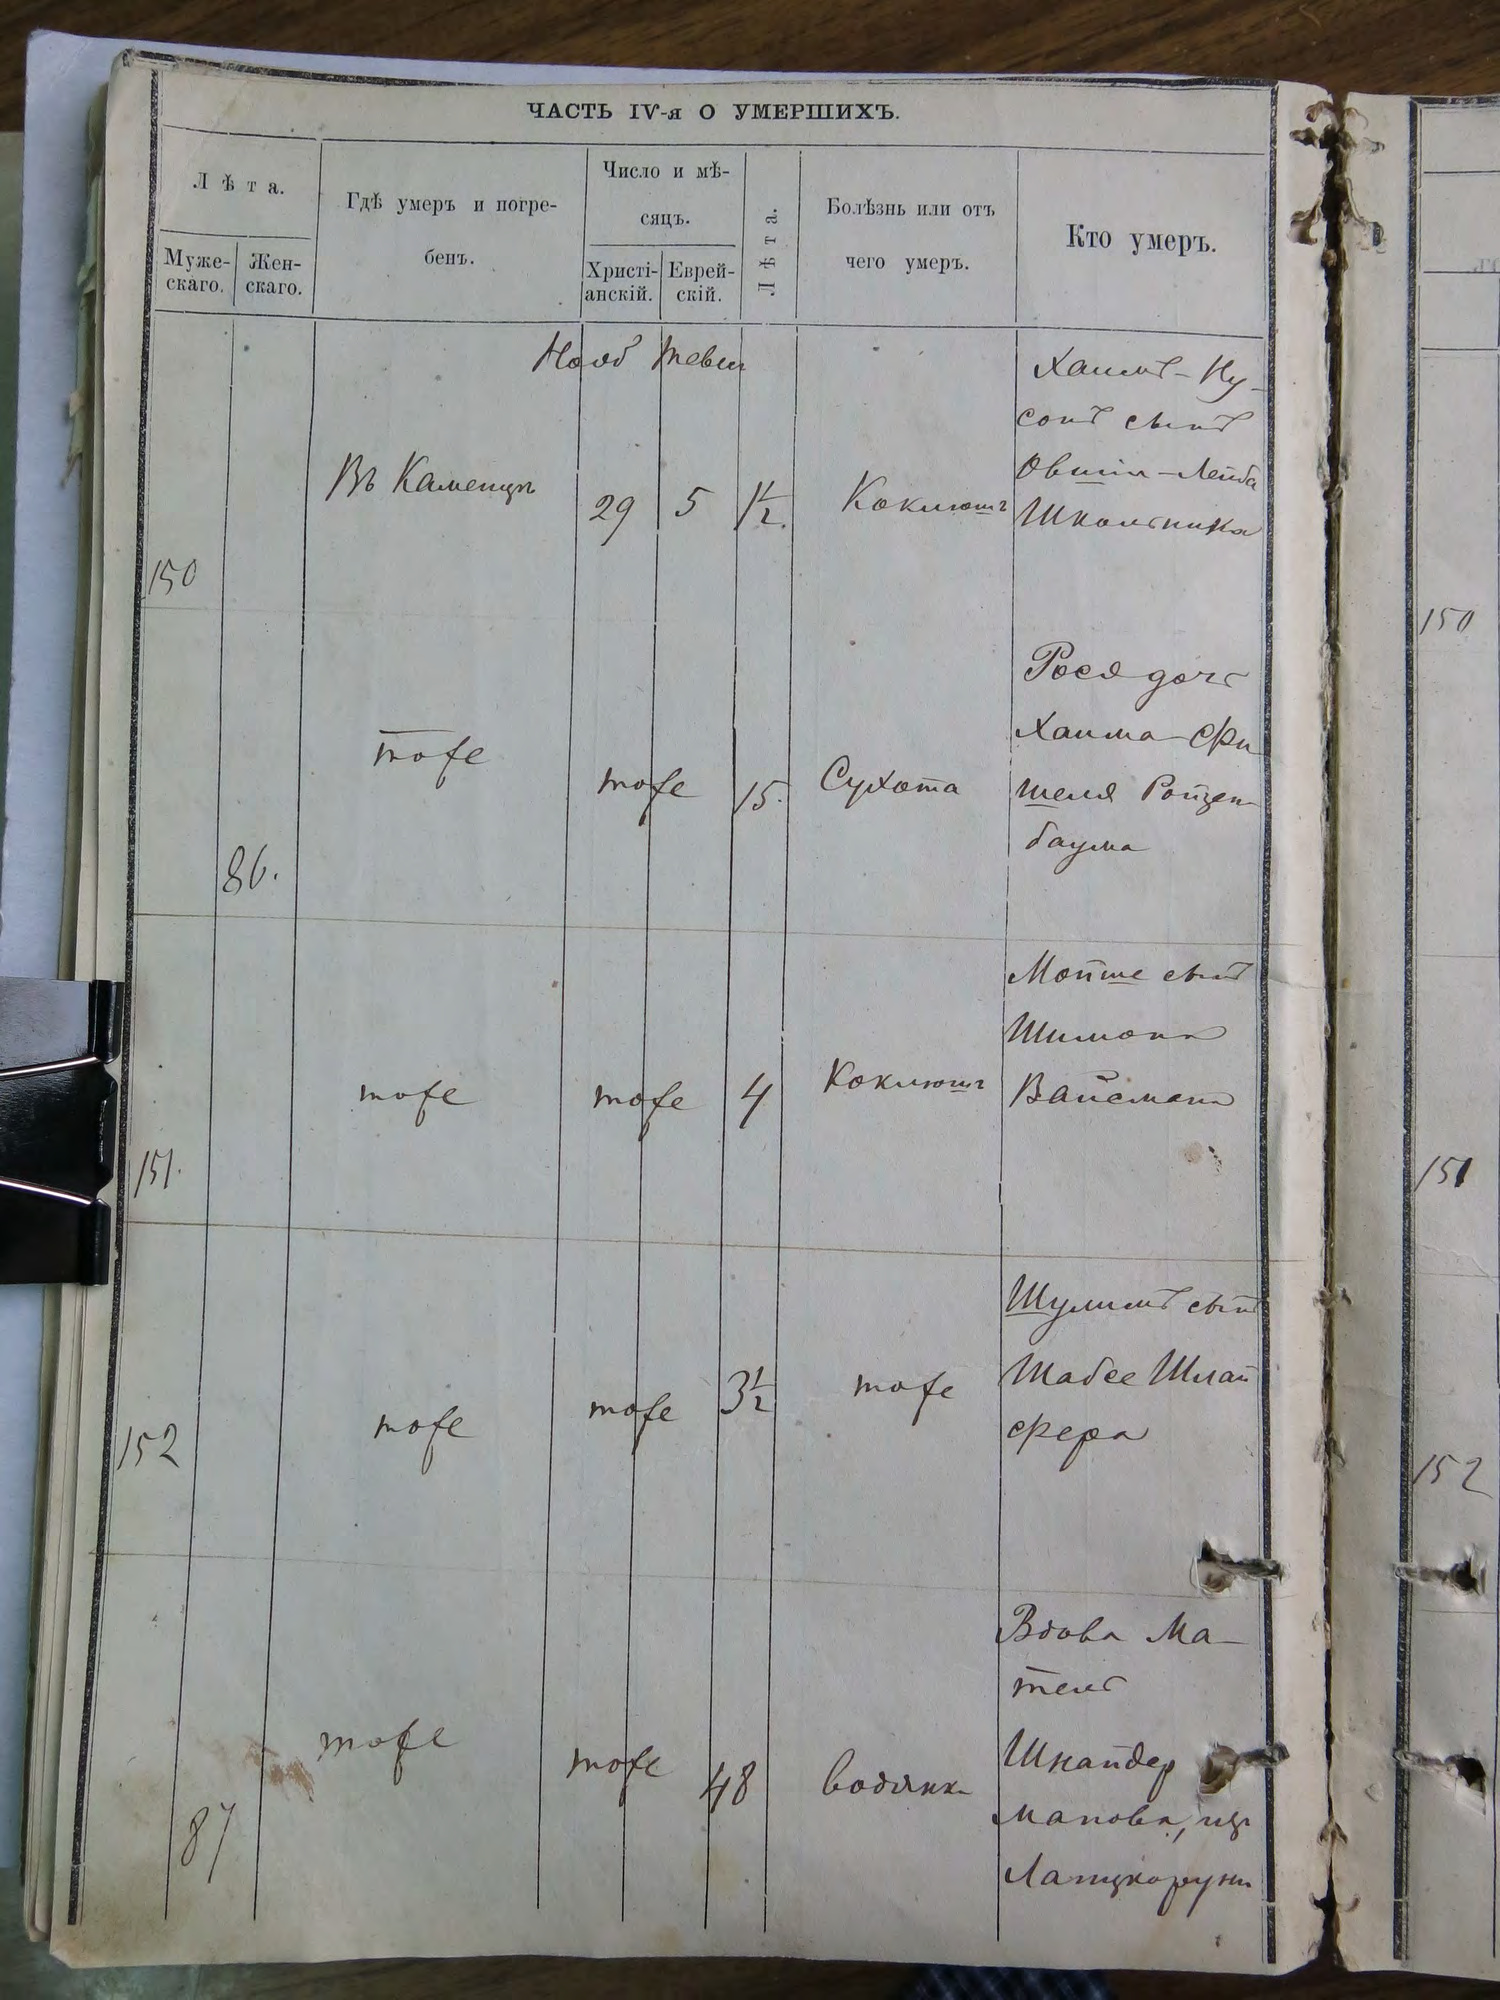 ЧАСТЬ IV-я О УМЕРШИХЪ.
Лѣта.
Муже-
скаго.
Жен-
скаго.
Гдѣ умеръ и погре-
бенъ.
Число и мѣ-
сяцъ.
Христі-
анскій.
Еврей-
скій.
Лѣта.
Болѣзнь или отъ
чего умеръ.
Кто умеръ.
Нояб Тевет
150
Въ Каменцѣ
29
5
1½.
Коклюшъ
Хаимъ-Ну-
сонъ сынъ
Овшія-Лейба
Школьника
86.
тоже
тоже
15.
Сухота
Рося дочь
Хаима-Фи
шеля Розен
баума
151.
тоже
тоже
4
Коклюшъ
Мойше сынъ
Шимона
Вайсмана
152
тоже
тоже
3½
тоже
Шулимъ сынъ
Шабсе Шлай
фера
87
тоже
тоже
48
водянка
Вдова Ма-
тель
Шнайдер
манова, изъ
Ланцкоруни
150
151
152